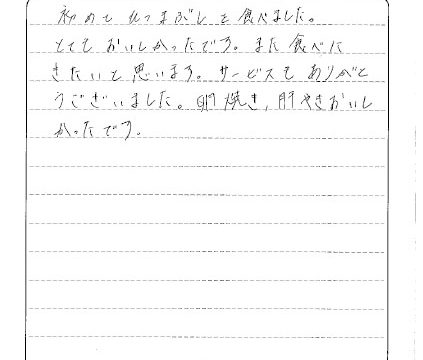 初めて ひつまぶしを食べました。
とても おいしかったです。また食べに
きたいと思います。サービスも ありがと
うございました。卵焼き、肝やきおいし
かったです。